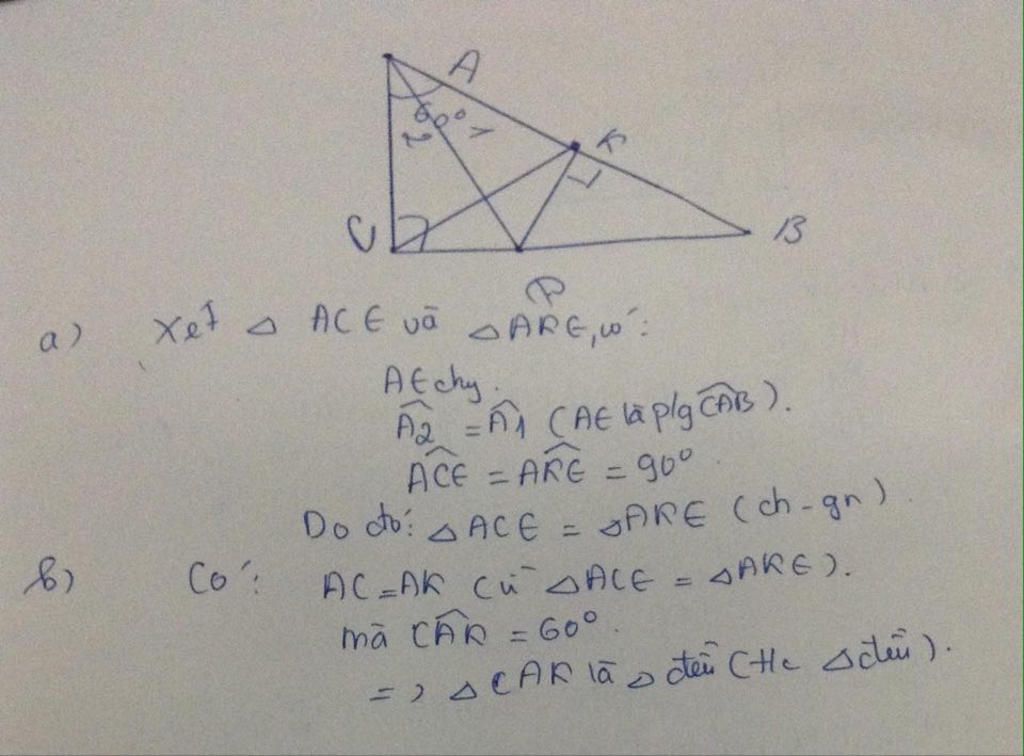 A
60°
2 1
K
C
B
E
a) Xét △ ACE và △AKE, có:
AE chg.
Â2 = Â1 (AE là p/g CÂB).
AĈE = AK̂E = 90°
Do đó: △ACE = △AKE (ch - gn).
b) Có: AC = AK (vì △ACE = △AKE).
mà CÂK = 60°.
=> △CAK là △ đều (t/c △đều).